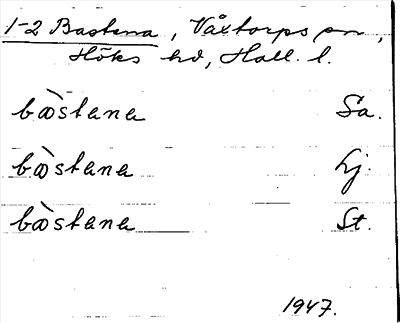 1-2 Bastena, Våxtorps sn,
Höks hd, Hall. l.
bà̀stana Sa.
bà̀stana Lj.
bà̀stana St.
1947.